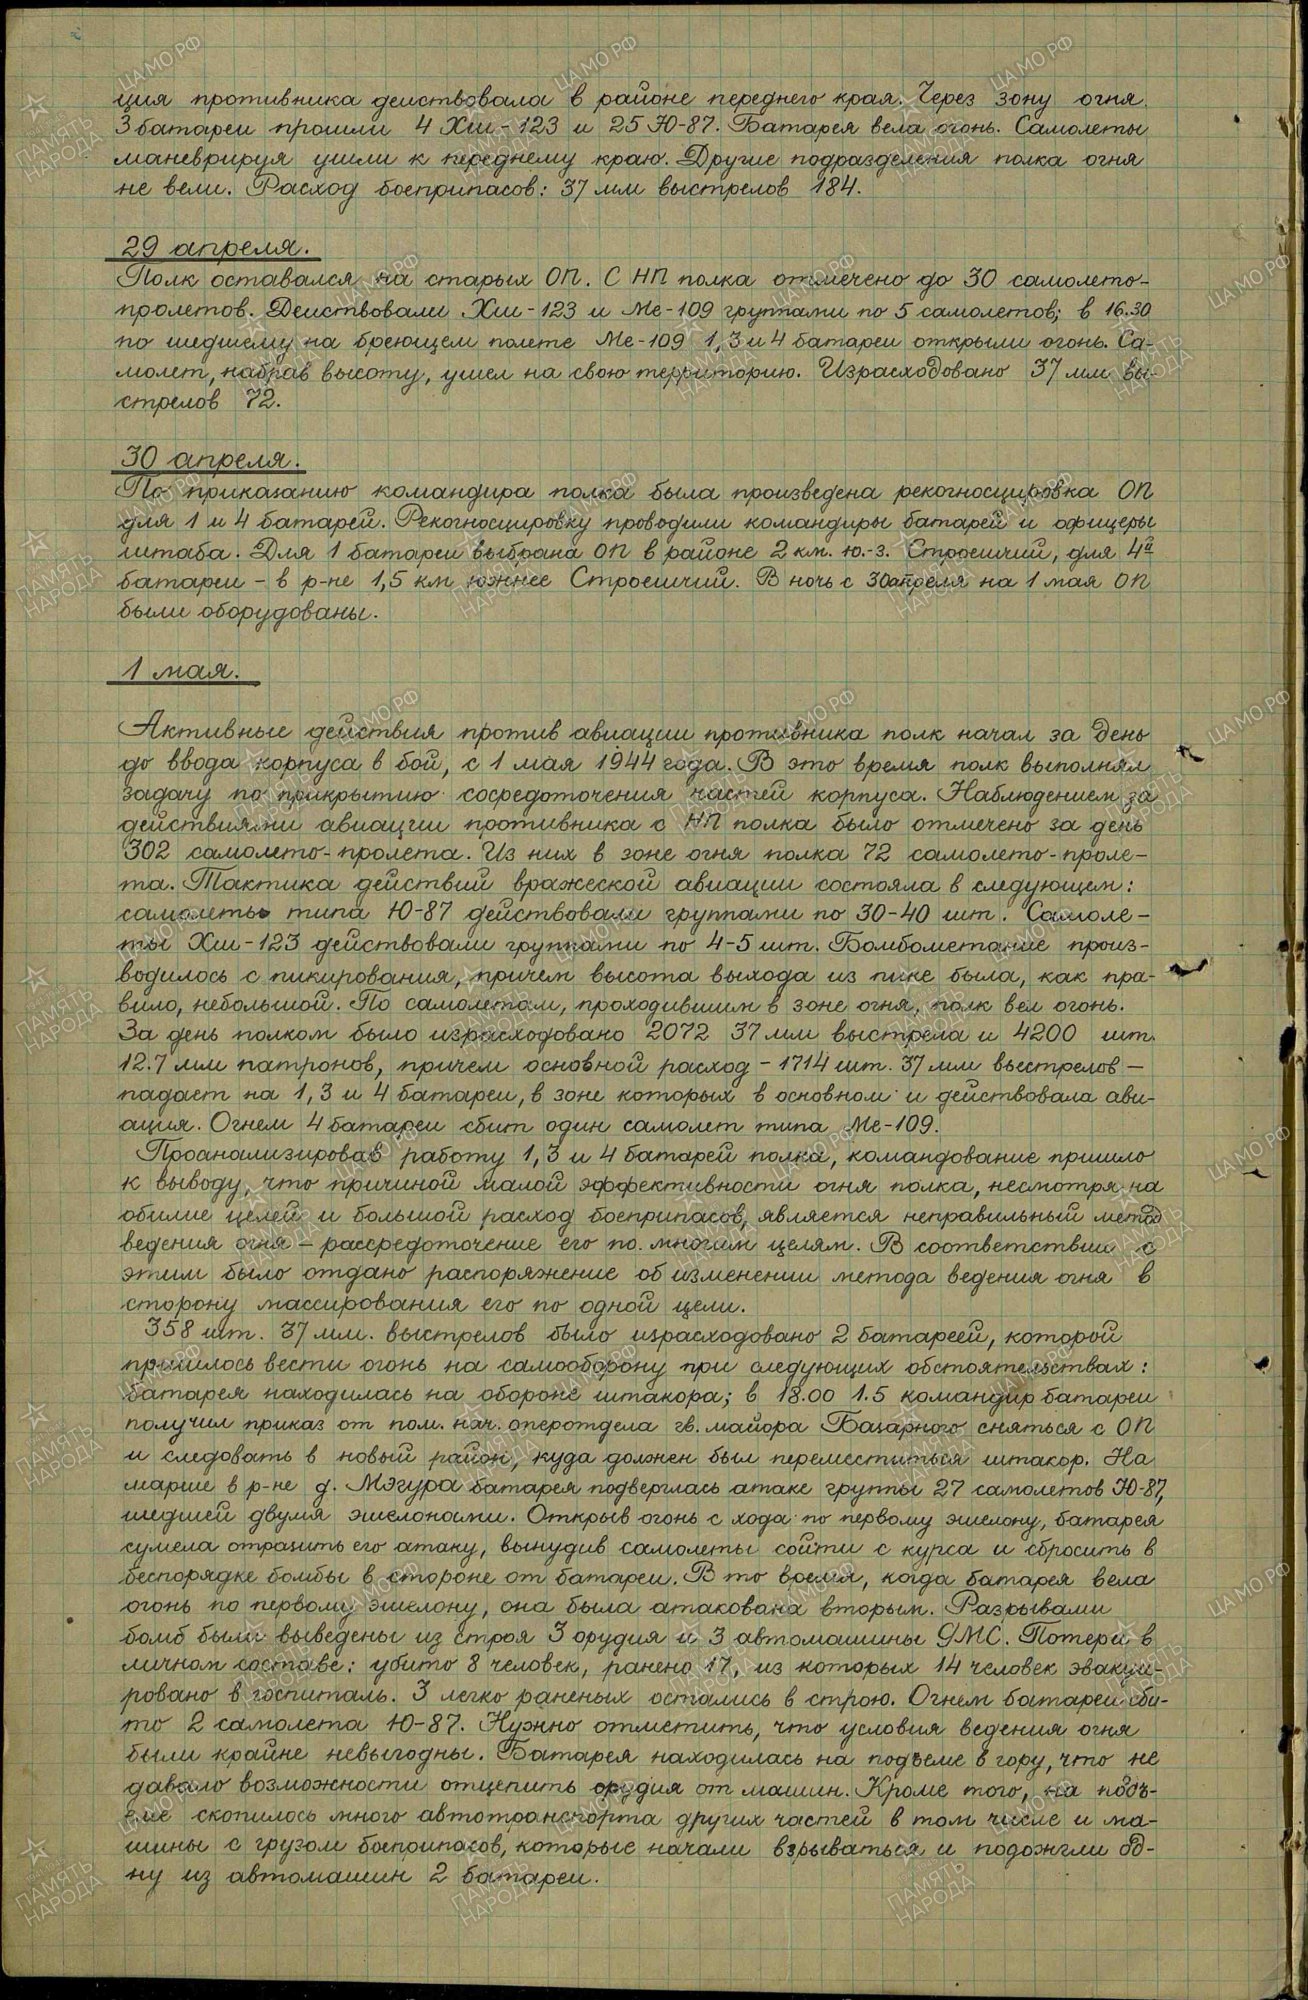 ция противника действовала в районе переднего края. Через зону огня
3 батареи прошли 4 Хш-123 и 25 Ю-87. Батарея вела огонь. Самолеты
маневрируя ушли к переднему краю. Другие подразделения полка огня
не вели. Расход боеприпасов: 37 мм выстрелов 184.
29 апреля.
Полк оставался на старых ОП. С НП полка отмечено до 30 самолето-
пролетов. Действовали Хш-123 и Ме-109 группами по 5 самолетов; в 16.30
по шедшему на бреющем полете Ме-109 1, 3 и 4 батареи открыли огонь. Са-
молет, набрав высоту, ушел на свою территорию. Израсходовано 37 мм вы-
стрелов 72.
30 апреля.
По приказанию командира полка была произведена рекогносцировка ОП
для 1 и 4 батарей. Рекогносцировку проводили командиры батарей и офицеры
штаба. Для 1 батареи выбрана ОП в районе 2 км. ю.-з. Строешчий, для 4й
батареи - в р-не 1,5 км южнее Строешчий. В ночь с 30 апреля на 1 мая ОП
были оборудованы.
1 мая.
Активные действия против авиации противника полк начал за день
до ввода корпуса в бой, с 1 мая 1944 года. В это время полк выполнял
задачу по прикрытию сосредоточения частей корпуса. Наблюдением за
действиями авиации противника с НП полка было отмечено за день
302 самолето-пролета. Из них в зоне огня полка 72 самолето-проле-
та. Тактика действий вражеской авиации состояла в следующем:
самолеты типа Ю-87 действовали группами по 30-40 шт. Самоле-
ты Хш-123 действовали группами по 4-5 шт. Бомбометание произ-
водилось с пикирования, причем высота выхода из пике была, как пра-
вило, небольшой. По самолетам, проходившим в зоне огня, полк вел огонь.
За день полком было израсходовано 2072 37 мм выстрела и 4200 шт.
12.7 мм патронов, причем основной расход - 1714 шт. 37 мм выстрелов -
падает на 1, 3 и 4 батареи, в зоне которых в основном и действовала ави-
ация. Огнем 4 батареи сбит один самолет типа Ме-109.
Проанализировав работу 1, 3 и 4 батарей полка, командование пришло
к выводу, что причиной малой эффективности огня полка, несмотря на
обилие целей и большой расход боеприпасов, является неправильный метод
ведения огня - рассредоточение его по многим целям. В соответствии с
этим было отдано распоряжение об изменении метода ведения огня в
сторону массирования его по одной цели.
358 шт. 37 мм. выстрелов было израсходовано 2 батареей, которой
пришлось вести огонь на самооборону при следующих обстоятельствах:
батарея находилась на обороне штакора; в 18.00 1.5 командир батареи
получил приказ от пом. нач. оперотдела гв. майора Базарного сняться с ОП
и следовать в новый район, куда должен был переместиться штакор. На
марше в р-не д. Мэгура батарея подверглась атаке группы 27 самолетов Ю-87,
шедшей двумя эшелонами. Открыв огонь с хода по первому эшелону, батарея
сумела отразить его атаку, вынудив самолеты сойти с курса и сбросить в
беспорядке бомбы в стороне от батареи. В то время, когда батарея вела
огонь по первому эшелону, она была атакована вторым. Разрывами
бомб были выведены из строя 3 орудия и 3 автомашины ДМС. Потери в
личном составе: убито 8 человек, ранено 17, из которых 14 человек эвакуи-
ровано в госпиталь. 3 легко раненых остались в строю. Огнем батареи сби-
то 2 самолета Ю-87. Нужно отметить, что условия ведения огня
были крайне невыгодны. Батарея находилась на подъеме в гору, что не
давало возможности отцепить орудия от машин. Кроме того, на подъ-
еме скопилось много автотранспорта других частей в том числе и ма-
шины с грузом боеприпасов, которые начали взрываться и подожгли од-
ну из автомашин 2 батареи.